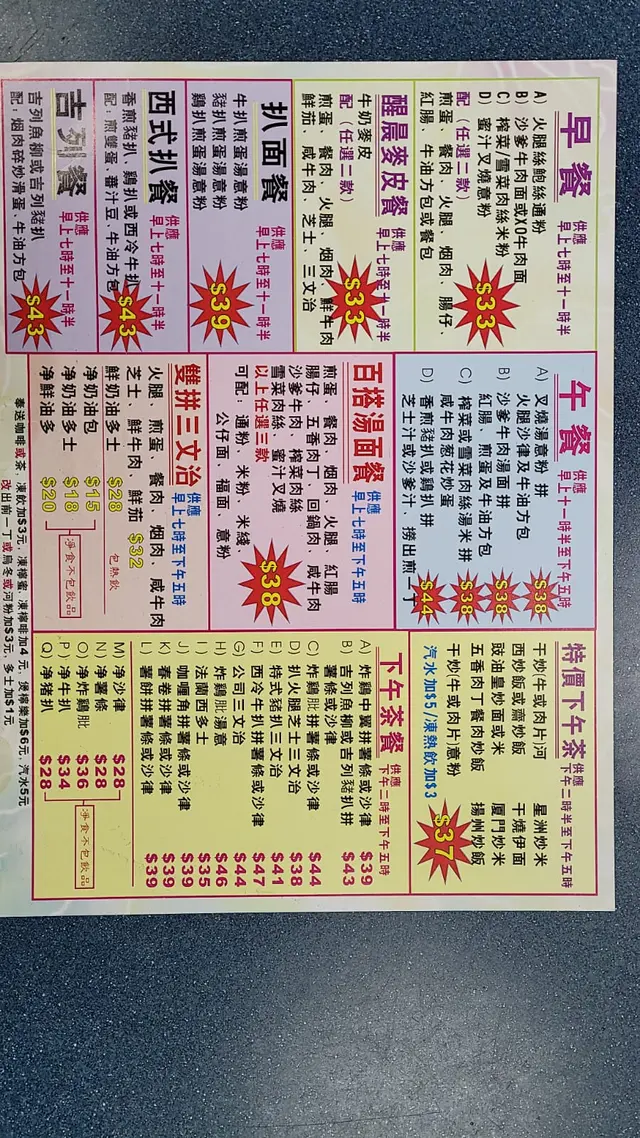 早餐 供應 早上七時至十一時半
A) 火腿絲鮑絲通粉
B) 沙爹牛肉面或XO牛肉面
C) 榨菜/雪菜肉絲米粉
D) 蜜汁叉燒意粉
配（任選二款）
煎蛋、餐肉、火腿、烟肉、腸仔、
紅腸、牛油方包或餐包
$33
醒晨麥皮餐 供應 早上七時至十一時半
牛奶麥皮
配（任選二款）
煎蛋、餐肉、火腿、烟肉、鮮牛肉
鮮茄、咸牛肉、芝士、三文治
$33
扒面餐 供應 早上七時至十一時半
牛扒煎蛋湯意粉
豬扒煎蛋湯意粉
鷄扒煎蛋湯意粉
$39
西式扒餐 供應 早上七時至十一時半
香煎豬扒、鷄扒或西冷牛扒
配：煎雙蛋、蕃汁豆、牛油方包
$43
吉列餐 供應 早上七時至十一時半
吉列魚柳或吉列豬扒
配：烟肉碎炒滑蛋、牛油方包
$43
午餐 供應 早上十一時半至下午五時
A) 叉燒湯意粉 拼
火腿沙律及牛油方包 $38
B) 沙爹牛肉湯面 拼
紅腸、煎蛋及牛油方包 $38
C) 榨菜或雪菜肉絲湯米 拼
咸牛肉葱花炒蛋 $38
D) 香煎豬扒或鷄扒 拼
芝士汁或沙爹汁 撈出前一丁 $44
百搭湯面餐 供應 早上七時至下午五時
煎蛋、餐肉、烟肉、火腿、紅腸
腸仔、五香肉丁、回鍋肉、咸牛肉
沙爹牛肉、榨菜肉絲
雪菜肉絲、蜜汁叉燒
以上任選三款
可配、通粉、米粉、米綫
公仔面、福面、意粉
$38
雙拼三文治 供應 早上七時至下午五時
火腿、煎蛋、餐肉、烟肉、咸牛肉
芝士、鮮牛肉、鮮茄 $32
鮮奶油多士 $28 包熱飲
净奶油包 $15
净奶油多士 $18
净鮮油多 $20
淨食不包飲品
特價下午茶 供應 下午二時半至下午五時
干炒(牛或肉片)河 星洲炒米
西炒飯或齋炒飯 干燒伊面
豉油皇炒面或米 厦門炒米
五香肉丁餐肉炒飯 揚州炒飯
干炒(牛或肉片)意粉
汽水加$5/凍熱飲加$3
$37
下午茶餐 供應 下午二時至下午五時
A) 炸鷄中翼拼薯條或沙律 $39
B) 吉列魚柳或吉列豬扒拼
薯條或沙律 $43
C) 炸鷄肶拼薯條或沙律 $44
D) 扒火腿芝士三文治 $38
E) 特式豬扒三文治 $41
F) 西冷牛扒拼薯條或沙律 $47
G) 公司三文治 $44
H) 炸鷄肶湯意 $46
I) 法蘭西多士 $35
J) 咖喱角拼薯條或沙律 $39
K) 春卷拼薯條或沙律 $39
L) 薯餅拼薯條或沙律 $39
M) 净沙律 $28
N) 净薯條 $28
O) 净炸鷄肶 $36
P) 净牛扒 $34
Q) 净豬扒 $28
淨食不包飲品
奉送咖啡或茶，凍飲加$3元，凍檸蜜，凍檸啡加4元，煲檸樂加$6元，汽水5元
改出前一丁或烏冬或河粉加$3元，多士加$1元